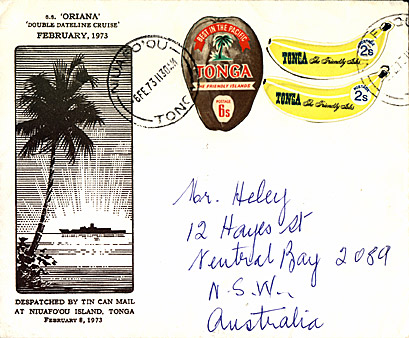 s.s. 'ORIANA'
'DOUBLE DATELINE CRUISE'
FEBRUARY, 1973
NIUAFO'OU
6FE73 11:30AM
TONGA
BEST IN THE PACIFIC
TONGA
THE FRIENDLY ISLANDS
POSTAGE
6s
TONGA The Friendly Isles
2s
TONGA The Friendly Isles
2s
Mr. Heley
12 Hayes St
Neutral Bay 2089
N.S.W.,
Australia
DESPATCHED BY TIN CAN MAIL
AT NIUAFO'OU ISLAND, TONGA
FEBRUARY 8, 1973